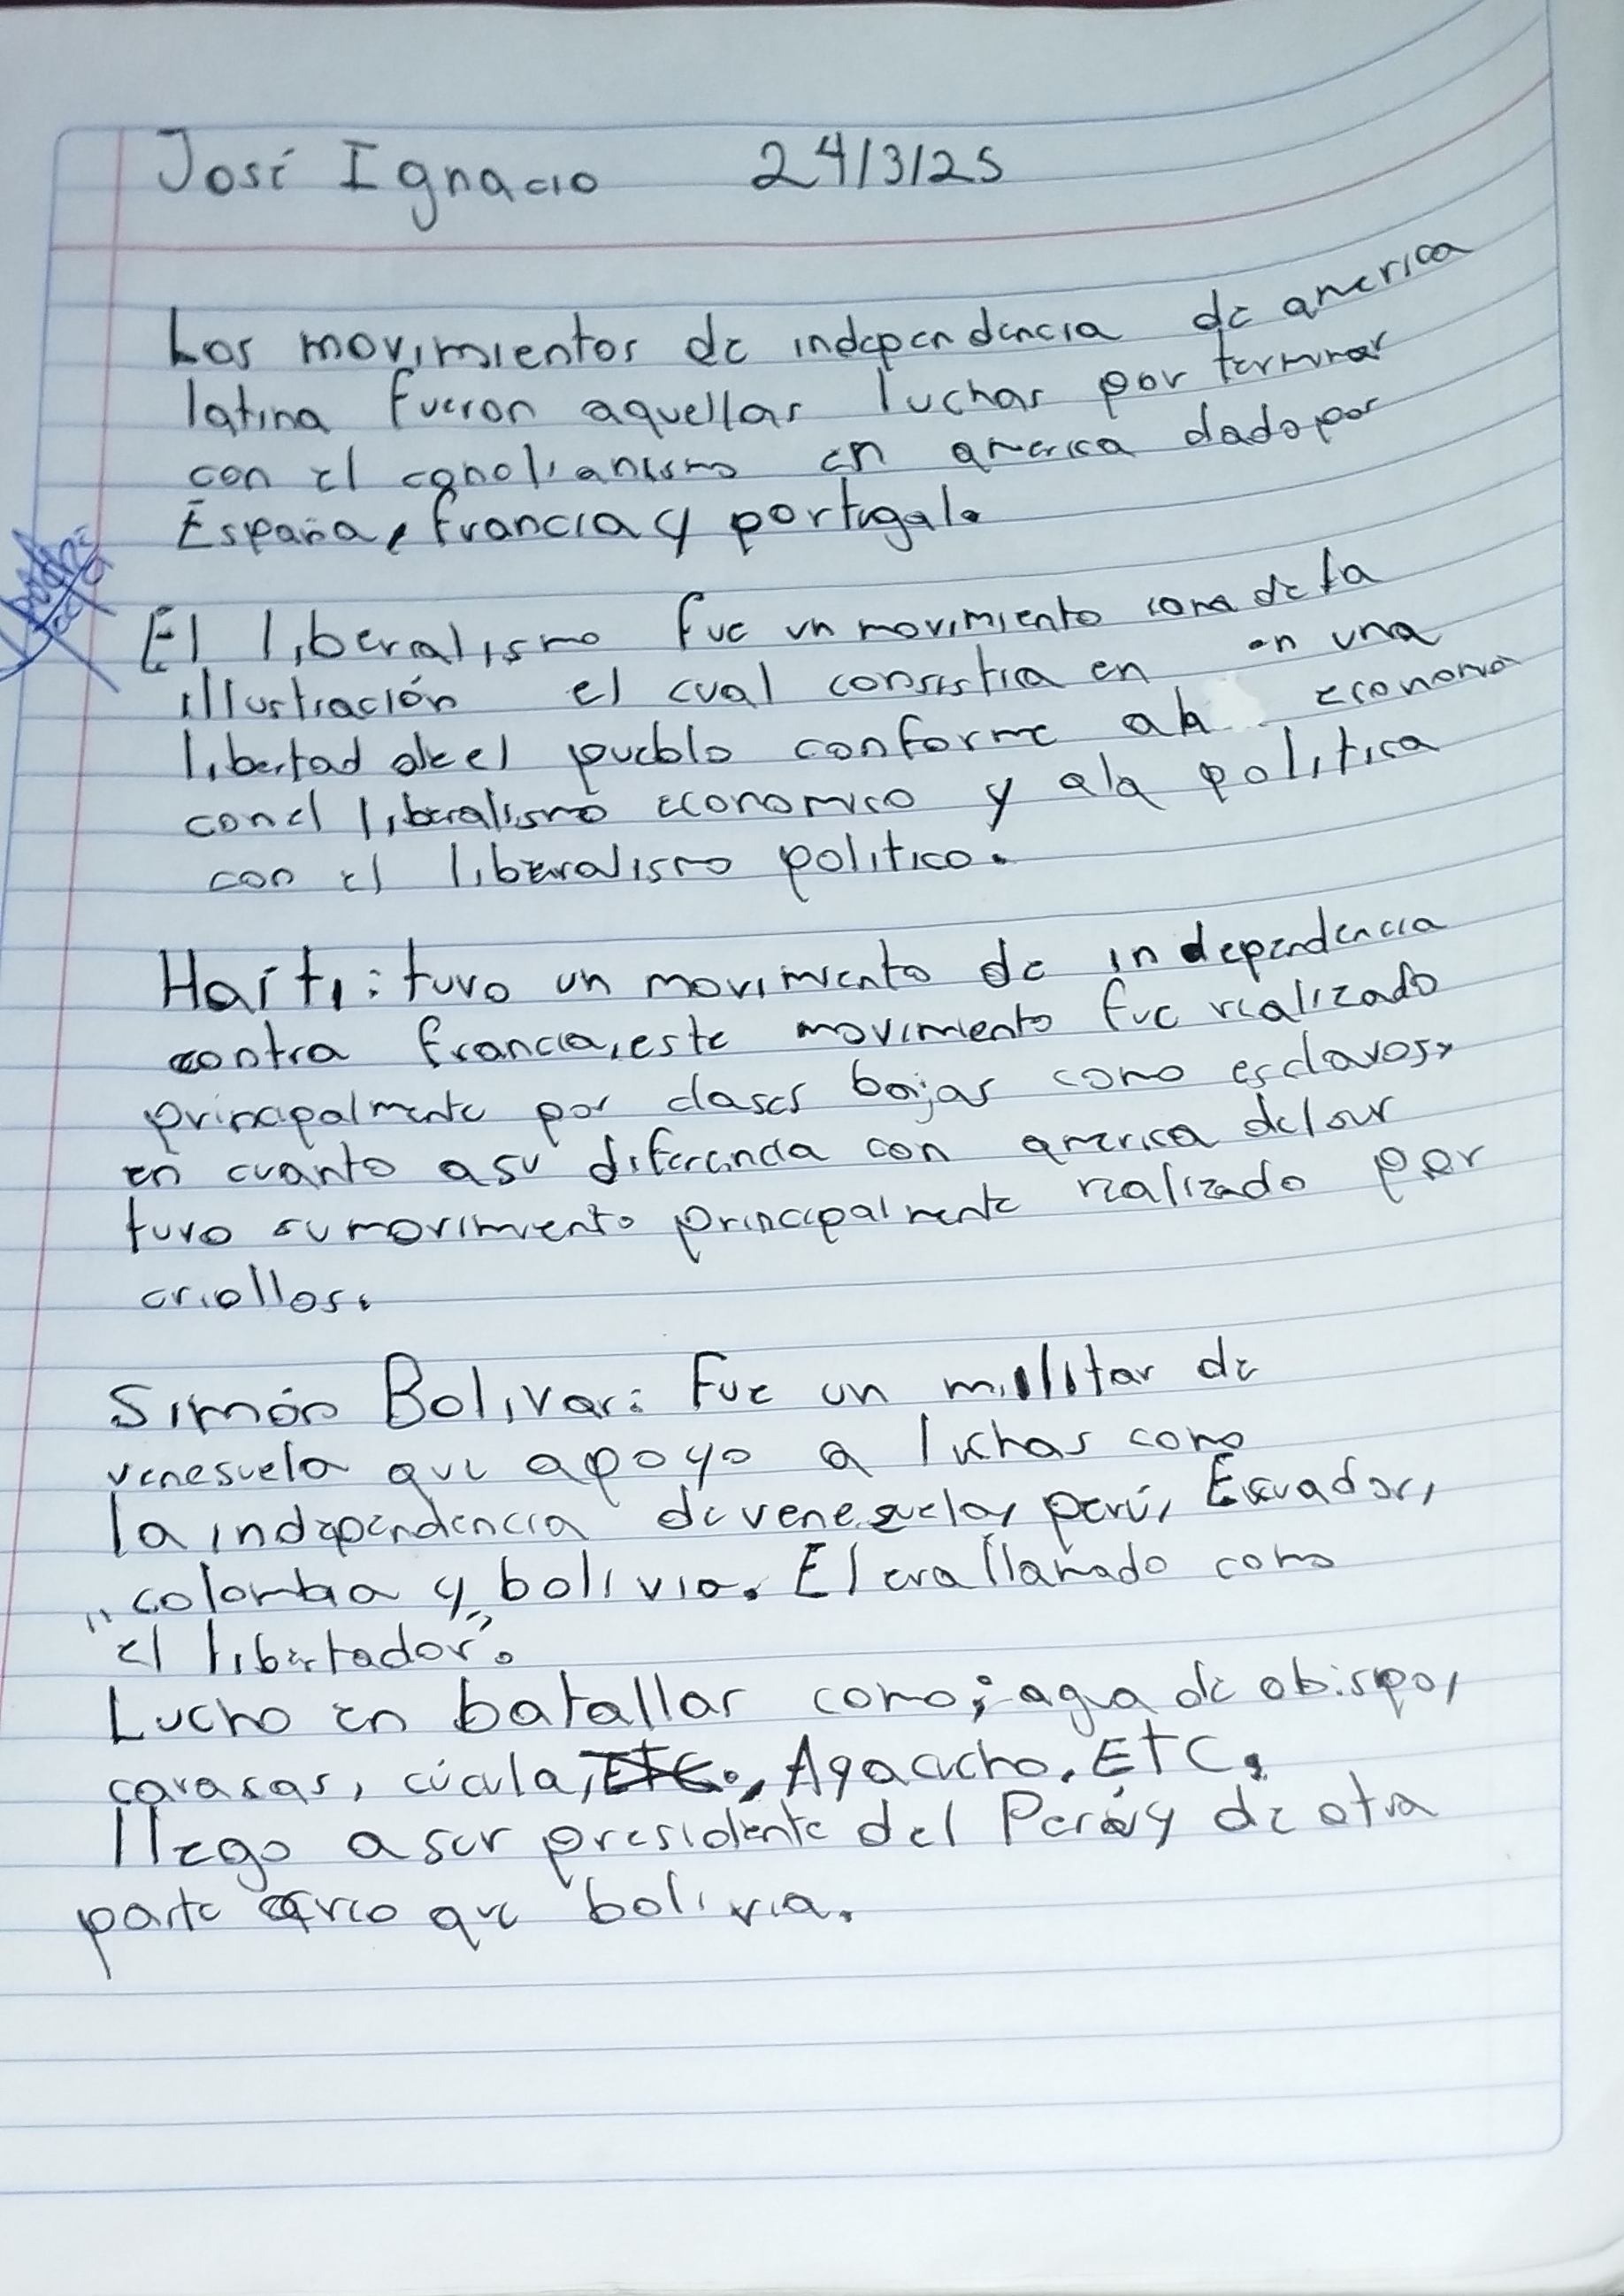 José Ignacio 24/3/25
Los movimientos de independencia de america
latina fueron aquellas luchas por terminar
con el en america dado por
España, francia y portugal.
El liberalismo fue un movimiento de la
illustración el cual consistia en en una
libertad de el pueblo conforme a economia
con el liberalismo economico y ala politica
con el liberalismo politico.
Haíti: tuvo un movimiento de independencia
contra francia, este movimiento fue realizado
principalmente por clases bajas como esclavos,
en cuanto a su diferencia con america del sur
tuvo su movimiento principalmente realizado por
criollos.
Simón Bolivar: Fue un militar de
venesuela que apoyo a luchas como
la independencia de venezuela, perú, Ecuador,
colombia y bolivia. El era llamado como
"el libertador".
Lucho en batallas como; agua de obispo,
carasas, cúcula, Ayacucho. ETC.
llego a ser presidente del Perú y de otra
parte creo que bolivia.